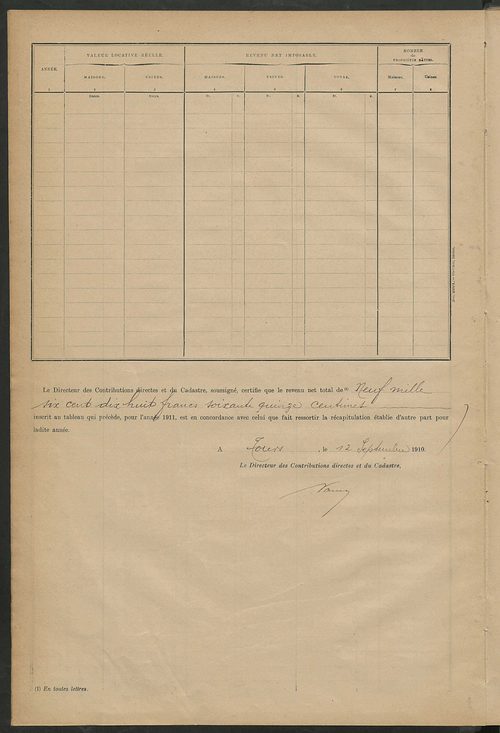 ANNÉE.
VALEUR LOCATIVE RÉELLE.
REVENU NET IMPOSABLE.
NOMBRE
de
PROPRIÉTÉS BÂTIES.
MAISONS.
USINES.
MAISONS.
USINES.
TOTAL.
Maisons.
Usines.
1 2 3 4 5 6 7 8
Le Directeur des Contributions directes et du Cadastre, soussigné, certifie que le revenu net total de (1) Neuf mille
six cent dix huit francs soixante quinze centimes
inscrit au tableau qui précède, pour l'année 1911, est en concordance avec celui que fait ressortir la récapitulation établie d'autre part pour
ladite année.
A Tours , le 12 Septembre 1910.
Le Directeur des Contributions directes et du Cadastre,
(1) En toutes lettres.